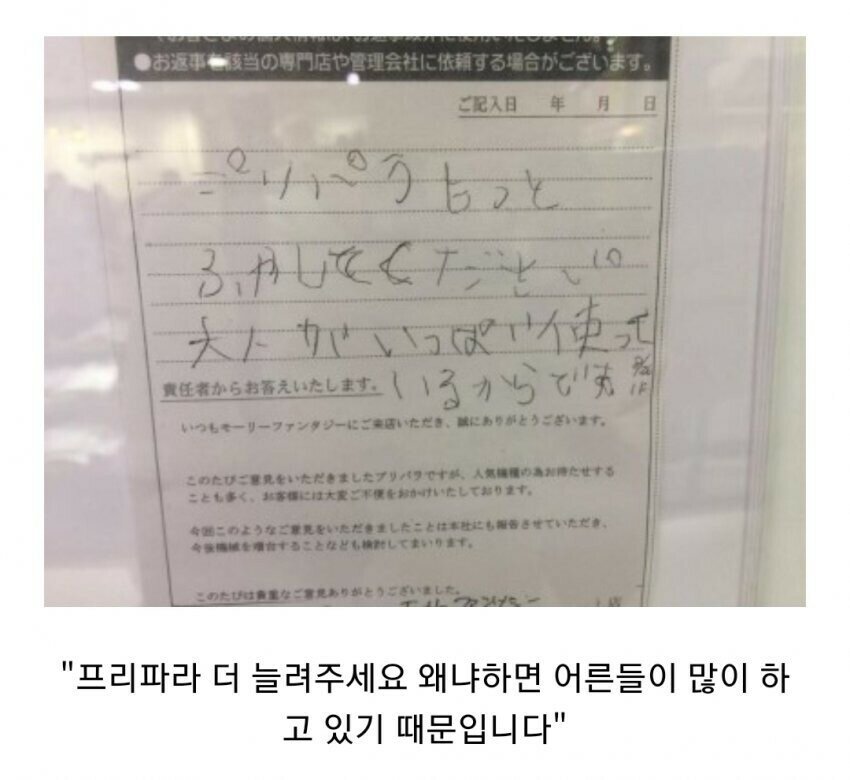 お客さまの個人情報は、お返事以外に使用いたしません。
●お返事を該当の専門店や管理会社に依頼する場合がございます。
ご記入日 年 月 日
プリパラもっと
ふやしてください
大人がいっぱい使って
いるからです
責任者からお答えいたします。
いつもモーリーファンタジーにご来店いただき、誠にありがとうございます。
このたびご意見をいただきましたプリパラですが、人気機種の為お待たせする
ことも多く、お客様には大変ご不便をおかけいたしております。
今回このようなご意見をいただきましたことは本社にも報告させていただき、
今後機械を増台することなども検討してまいります。
このたびは貴重なご意見ありがとうございました。
"프리파라 더 늘려주세요 왜냐하면 어른들이 많이 하
고 있기 때문입니다"